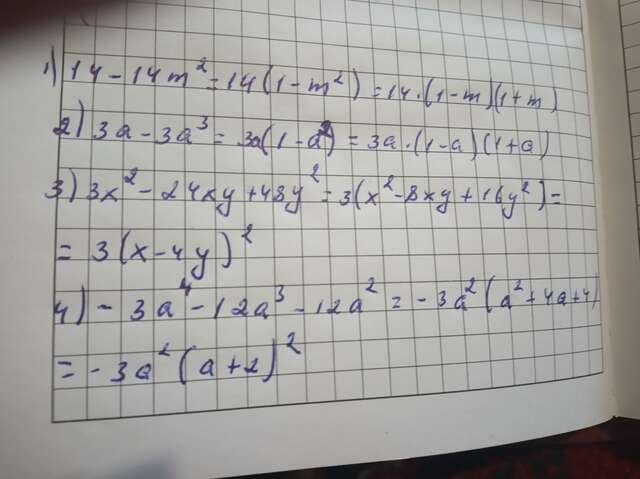 1) 14 - 14m² = 14(1 - m²) = 14·(1 - m)(1 + m)
2) 3a - 3a³ = 3a(1 - a²) = 3a·(1 - a)(1 + a)
3) 3x² - 24xy + 48y² = 3(x² - 8xy + 16y²) =
= 3(x - 4y)²
4) - 3a⁴ - 12a³ - 12a² = - 3a²(a² + 4a + 4)
= - 3a²(a + 2)²